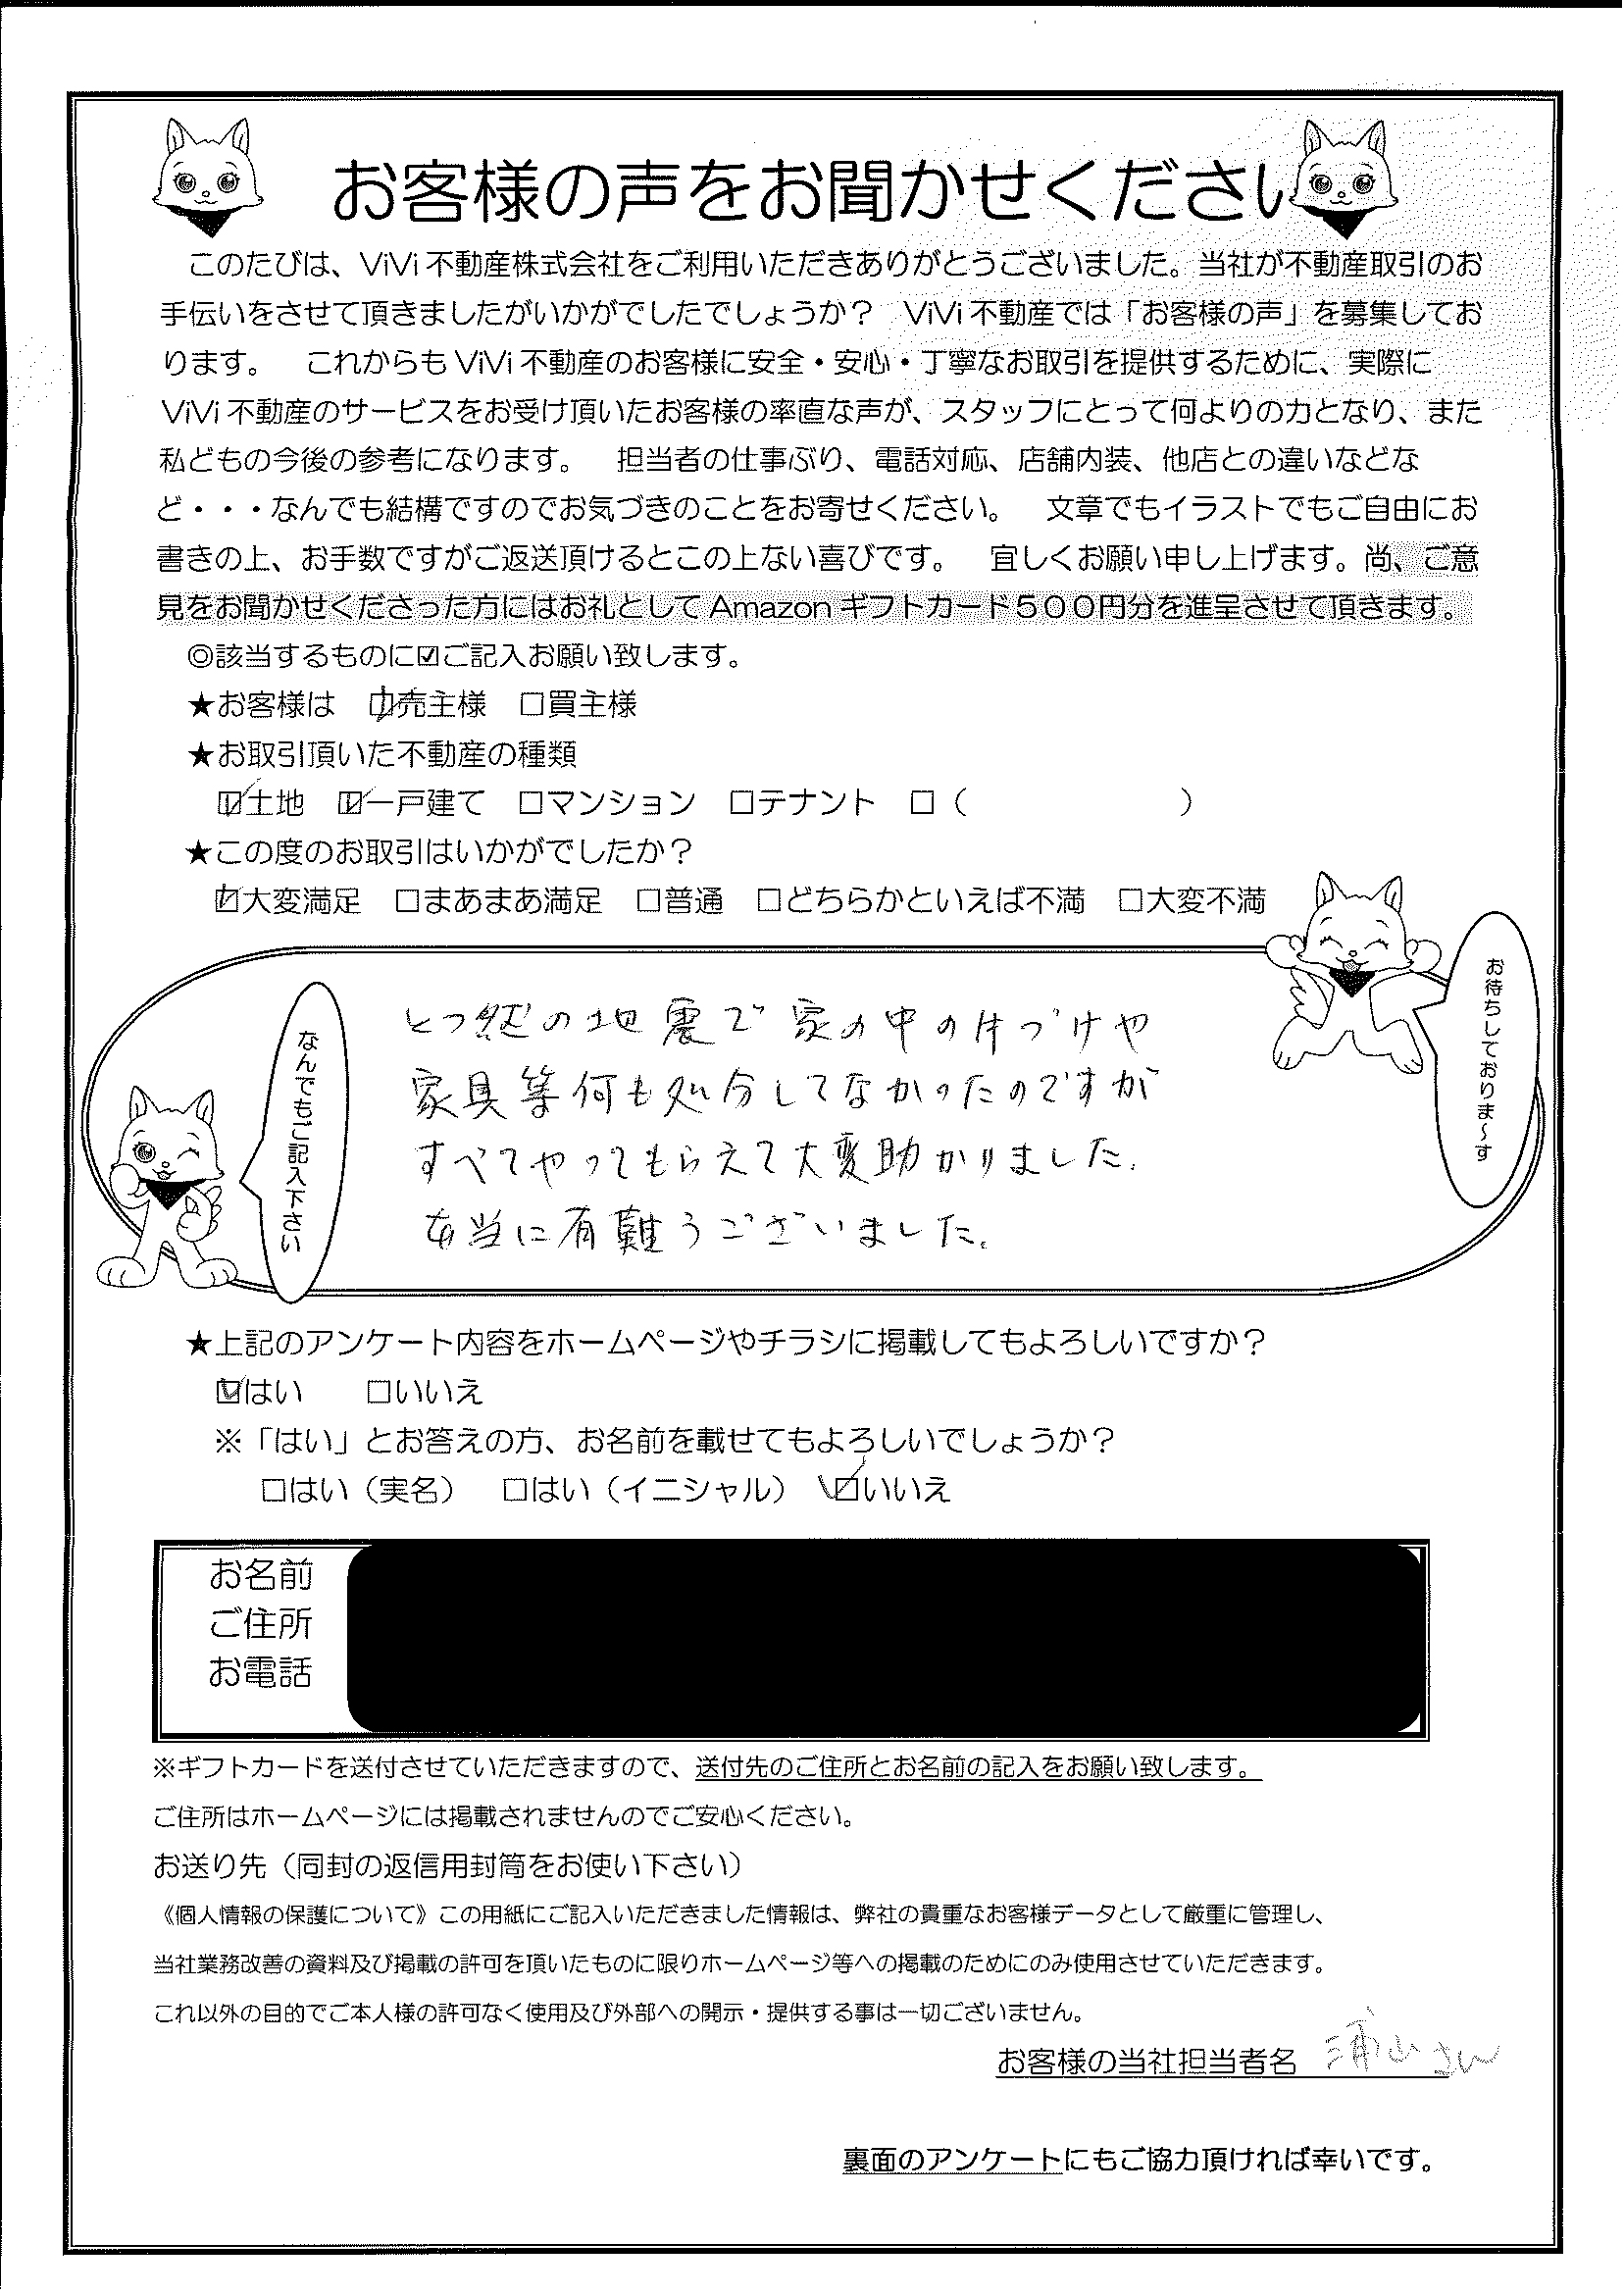 お客様の声をお聞かせください
このたびは、ViVi不動産株式会社をご利用いただきありがとうございました。当社が不動産取引のお
手伝いをさせて頂きましたがいかがでしたでしょうか？　ViVi不動産では「お客様の声」を募集してお
ります。　これからもViVi不動産のお客様に安全・安心・丁寧なお取引を提供するために、実際に
ViVi不動産のサービスをお受け頂いたお客様の率直な声が、スタッフにとって何よりの力となり、また
私どもの今後の参考になります。　担当者の仕事ぶり、電話対応、店舗内装、他店との違いなどな
ど・・・なんでも結構ですのでお気づきのことをお寄せください。　文章でもイラストでもご自由にお
書きの上、お手数ですがご返送頂けるとこの上ない喜びです。　宜しくお願い申し上げます。尚、ご意
見をお聞かせくださった方にはお礼としてAmazonギフトカード５００円分を進呈させて頂きます。
◎該当するものに☑ご記入お願い致します。
★お客様は　☑売主様　□買主様
★お取引頂いた不動産の種類
☑土地　☑一戸建て　□マンション　□テナント　□（　　　　　　　）
★この度のお取引はいかがでしたか？
☑大変満足　□まあまあ満足　□普通　□どちらかといえば不満　□大変不満
お待ちしておりま～す
なんでもご記入下さい
とつ然の地震で家の中の片づけや
家具等何も処分してなかったのですが
すべてやってもらえて大変助かりました。
本当に有難うございました。
★上記のアンケート内容をホームページやチラシに掲載してもよろしいですか？
☑はい　□いいえ
※「はい」とお答えの方、お名前を載せてもよろしいでしょうか？
□はい（実名）　□はい（イニシャル）　☑いいえ
お名前
ご住所
お電話
※ギフトカードを送付させていただきますので、送付先のご住所とお名前の記入をお願い致します。
ご住所はホームページには掲載されませんのでご安心ください。
お送り先（同封の返信用封筒をお使い下さい）
《個人情報の保護について》この用紙にご記入いただきました情報は、弊社の貴重なお客様データとして厳重に管理し、
当社業務改善の資料及び掲載の許可を頂いたものに限りホームページ等への掲載のためにのみ使用させていただきます。
これ以外の目的でご本人様の許可なく使用及び外部への開示・提供する事は一切ございません。
お客様の当社担当者名　浦山さん
裏面のアンケートにもご協力頂ければ幸いです。